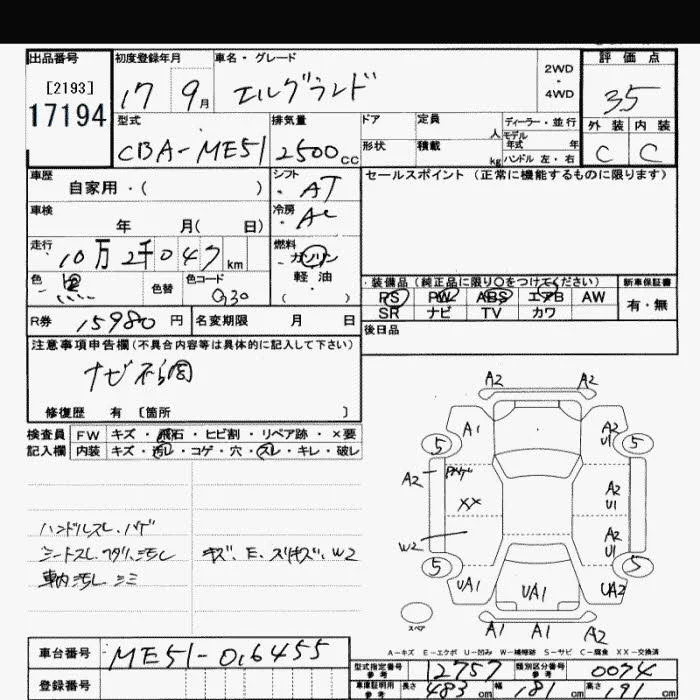 出品番号 初度登録年月 車名・グレード 2WD ・ 4WD 評価点
[2193]
17194 17 9月 エルグランド 3.5
型式 排気量 ドア 定員 人 ディーラー・並行 外装 内装
CBA-ME51 2500cc 形状 積載 kg モデル年式 年 ハンドル 左・右 C C
車歴 シフト セールスポイント (正常に機能するものに限ります)
自家用・( ) AT
車検 冷房
年 月( 日) AC
走行 燃料
10万2千047km ガソリン
色 黒 色替 色コード 軽・油
G30 ( )
・装備品(純正品に限り○をつけてください) 新車保証書
PS PW ABS エアB AW 有・無
SR ナビ TV カワ
R券 15980円 名変期限 月 日
後日品
注意事項申告欄(不具合内容等は具体的に記入して下さい)
修復歴 有 〔箇所 〕
検査員 FW キズ・飛石・ヒビ割・リペア跡・×要
記入欄 内装 キズ・汚レ・コゲ・穴・スレ・キレ・破レ
ハンドルスレ、ハゲ
シートスレ、汚レ
車内汚レ シミ
キズ、E、スリキズ、W2
A2 A2
A1 A2 U1
5 5
A2
XX A2 U1
W2 A2 U1
5 5
UA1 UA1 UA2
スペア A1 A1 A2
A-キズ E-エクボ U-凹み W-補修跡 S-サビ C-腐食 XX-交換済
車台番号 ME51-016455
型式指定番号 参考 12757 類別区分番号 参考 0074
登録番号
車庫証明用 参考 長さ 483cm 幅 181cm 高さ 191cm